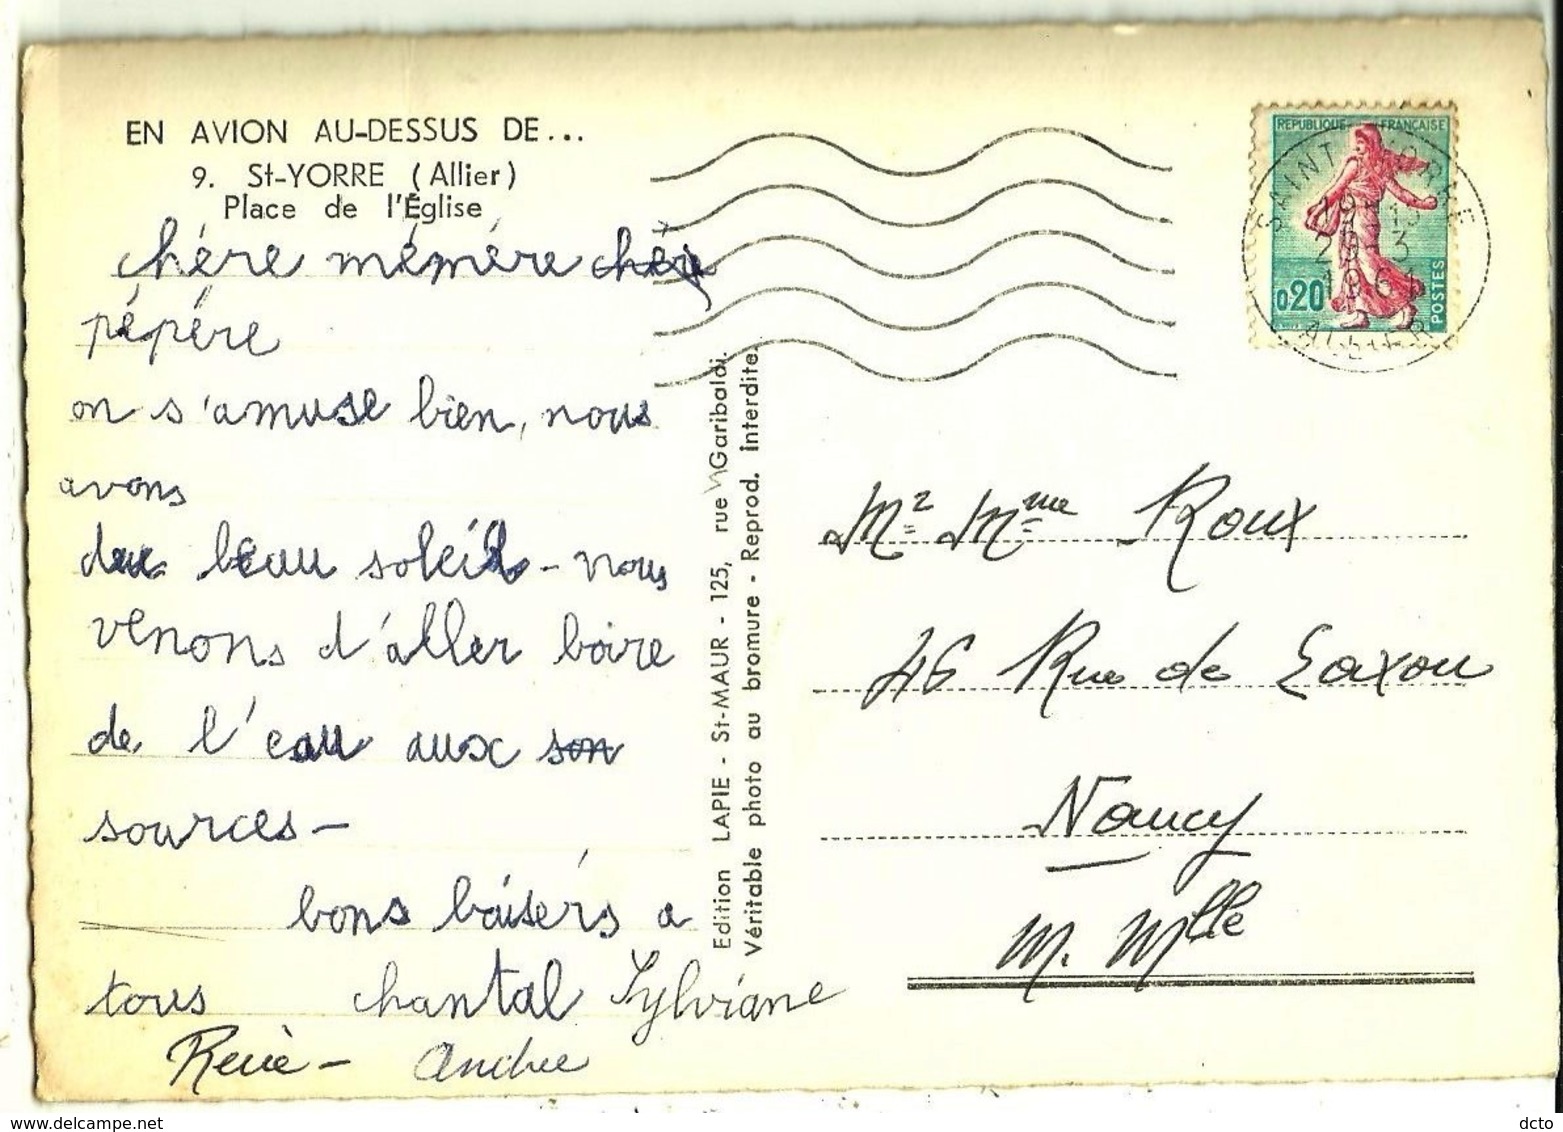 EN AVION AU-DESSUS DE...
9. St-YORRE (Allier)
Place de l'Église
chére mémére chère
pépére
on s'amuse bien, nous
avons
du beau soleil - nous
venons d'aller boire
de l'eau aux son
sources -
bons baisers a
tous chantal Sylviane
René - Andrée
Edition LAPIE - St-MAUR - 125, rue Garibaldi.
Véritable photo au bromure - Reprod. interdite.
REPUBLIQUE FRANÇAISE
0,20
POSTES
SAINT YORRE
1961
ALLIER
Mr Mme Roux
46 Rue de Saxon
Nancy
M. Mlle
delcampe.net
dcto